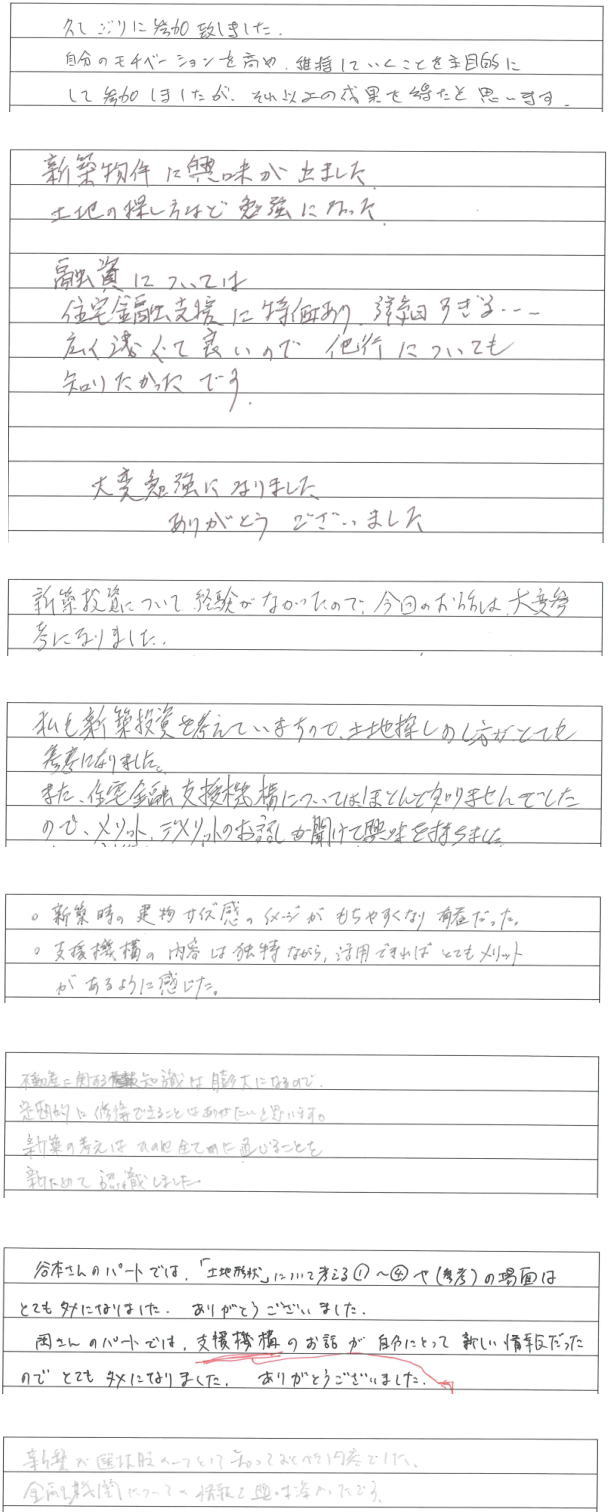 久しぶりに参加致しました.
自分のモチベーションを高め、維持していくことを主目的に
して参加しましたが、それ以上の成果を得たと思います.
新築物件に興味が出ました
土地の探し方など勉強になった
融資については
住宅金融支援に特化あり すぎる…
広く浅くて良いので 他行についても
知りたかったです.
大変勉強になりました
ありがとう ございました
新築投資について経験がなかったので、今回のお話は、大変参
考になりました.
私も新築投資を考えていますので、土地探しの仕方がとても
参考になりました。
また、住宅金融支援機構についてはほとんど知りませんでした
ので、メリット、デメリットのお話しが聞けて興味を持ちました
○ 新築時の建物サイズ感のイメージがもちやすくなり有益だった。
○ 支援機構の内容は独特ながら、活用できればとてもメリット
があるように感じた。
不動産に関する知識は膨大になるので、
定期的に できることは 思います。
新築の考えは 全てに通じることを
新ためて認識しました
谷本さんのパートでは、「土地形状」について考える①～④や(参考)の場面は
とてもタメになりました. ありがとうございました.
岡さんのパートでは、支援機構のお話が自分にとって新しい情報だった
のでとてもタメになりました. ありがとうございました.
新築が選択肢の一つとして知っておくべき内容でした、
金融機関についての情報も興味深かったです。